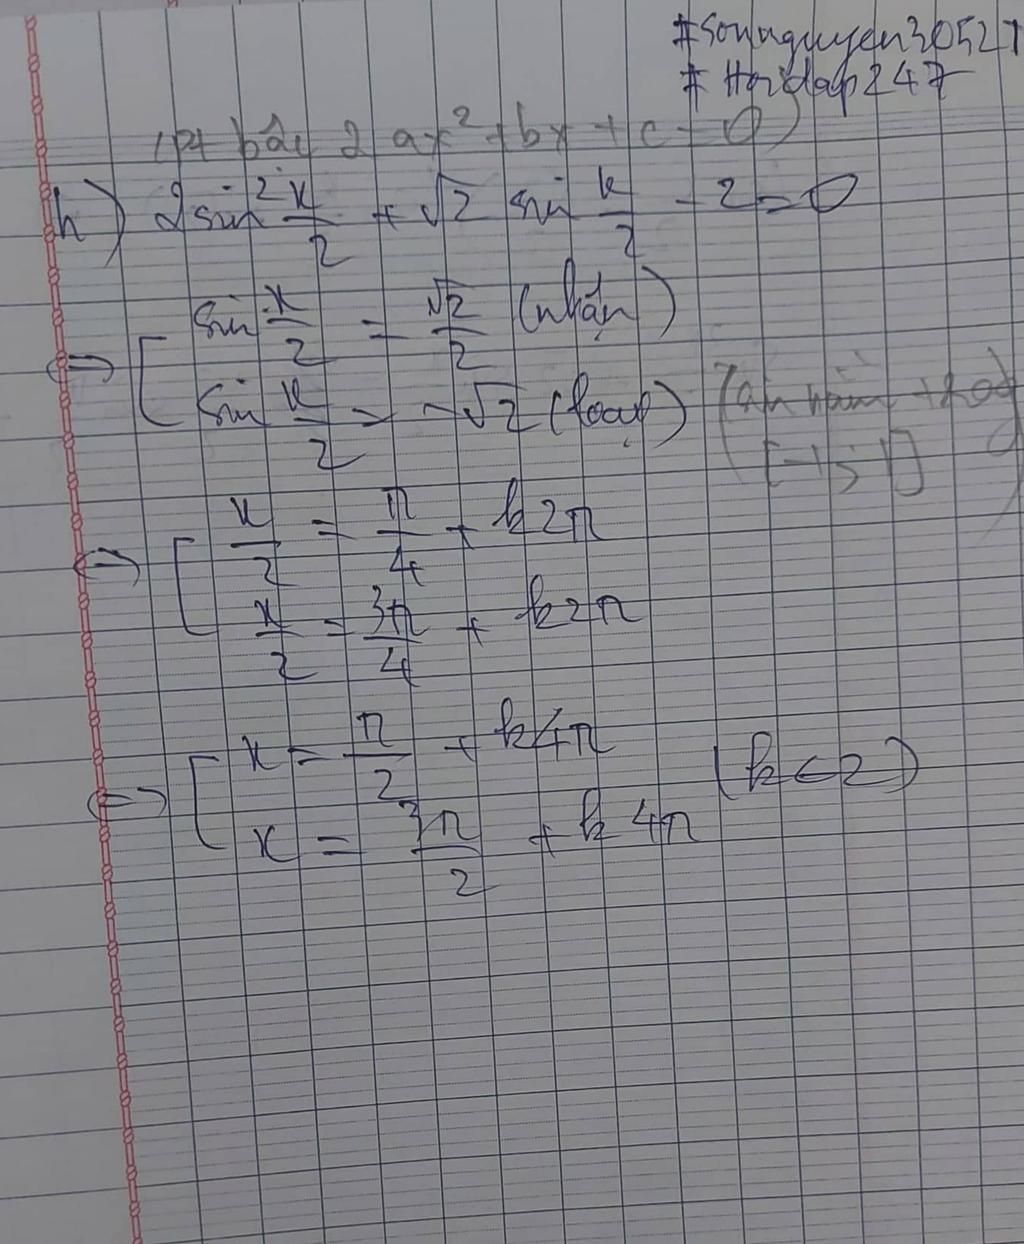 #Sonnguyen30527
#Hoidap247
(pt bậc 2 ax² + bx + c = 0)
h) 2sin² x/2 + √2 sin x/2 - 2 = 0
⇔ [ sin x/2 = √2/2 (nhận)
sin x/2 = -√2 (loại) [-1; 1]
⇔ [ x/2 = π/4 + k2π
x/2 = 3π/4 + k2π
⇔ [ x = π/2 + k4π
x = 3π/2 + k4π (k ∈ Z)